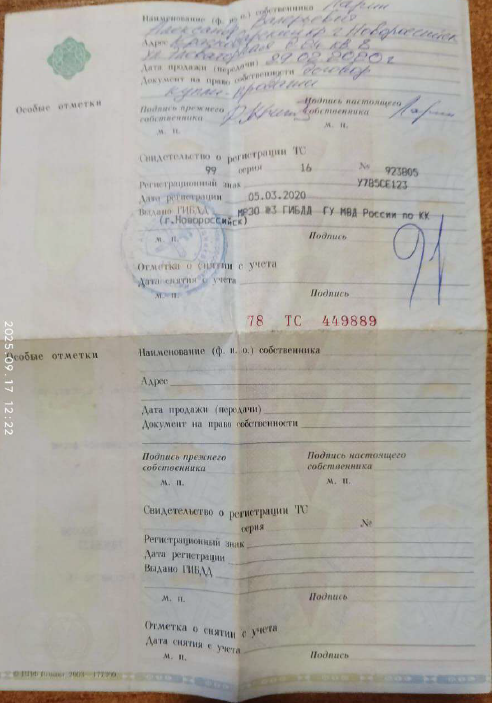 Особые отметки
Наименование (ф. и. о.) собственника Ларин
Валерьевич
Адрес Краснодарский кр г Новороссийск
кв. 8
Дата продажи (передачи) 29.02.2020 г
Документ на право собственности договор
купли-продажи
Подпись прежнего собственника
Подпись настоящего собственника
м. п.
м. п.
Свидетельство о регистрации ТС
99 серия 16 № 923805
Регистрационный знак У785СЕ123
Дата регистрации 05.03.2020
Выдано ГИБДД МРЭО №3 ГИБДД ГУ МВД России по КК
(г.Новороссийск)
м. п.
Подпись
Отметка о снятии с учета
Дата снятия с учета
м. п.
Подпись
78 ТС 449889
Особые отметки
Наименование (ф. и. о.) собственника
Адрес
Дата продажи (передачи)
Документ на право собственности
Подпись прежнего собственника
Подпись настоящего собственника
м. п.
м. п.
Свидетельство о регистрации ТС
серия №
Регистрационный знак
Дата регистрации
Выдано ГИБДД
м. п.
Подпись
Отметка о снятии с учета
Дата снятия с учета
м. п.
Подпись
2025.09.17 12:22